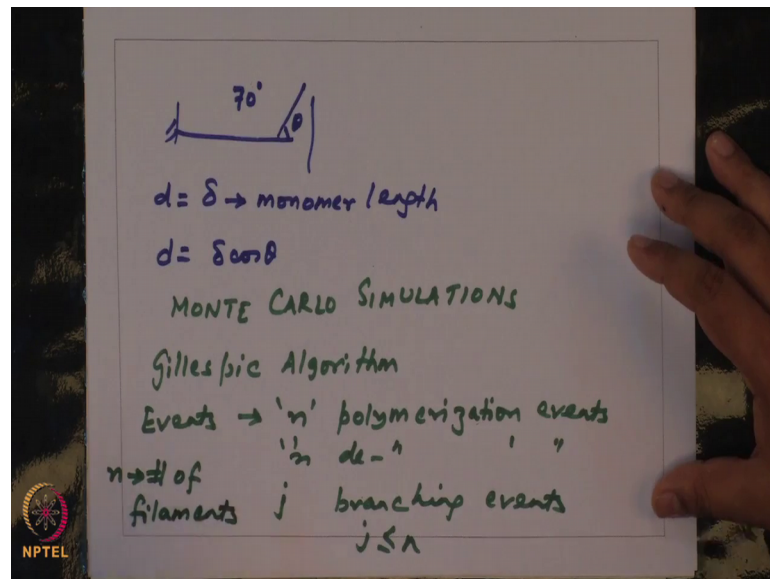 70°
θ
d = δ → monomer length
d = δ cosθ
MONTE CARLO SIMULATIONS
Gillespie Algorithm
Events → 'n' polymerization events
'n de-" ' "
n → # of
filaments j branching events
j ≤ n
NPTEL